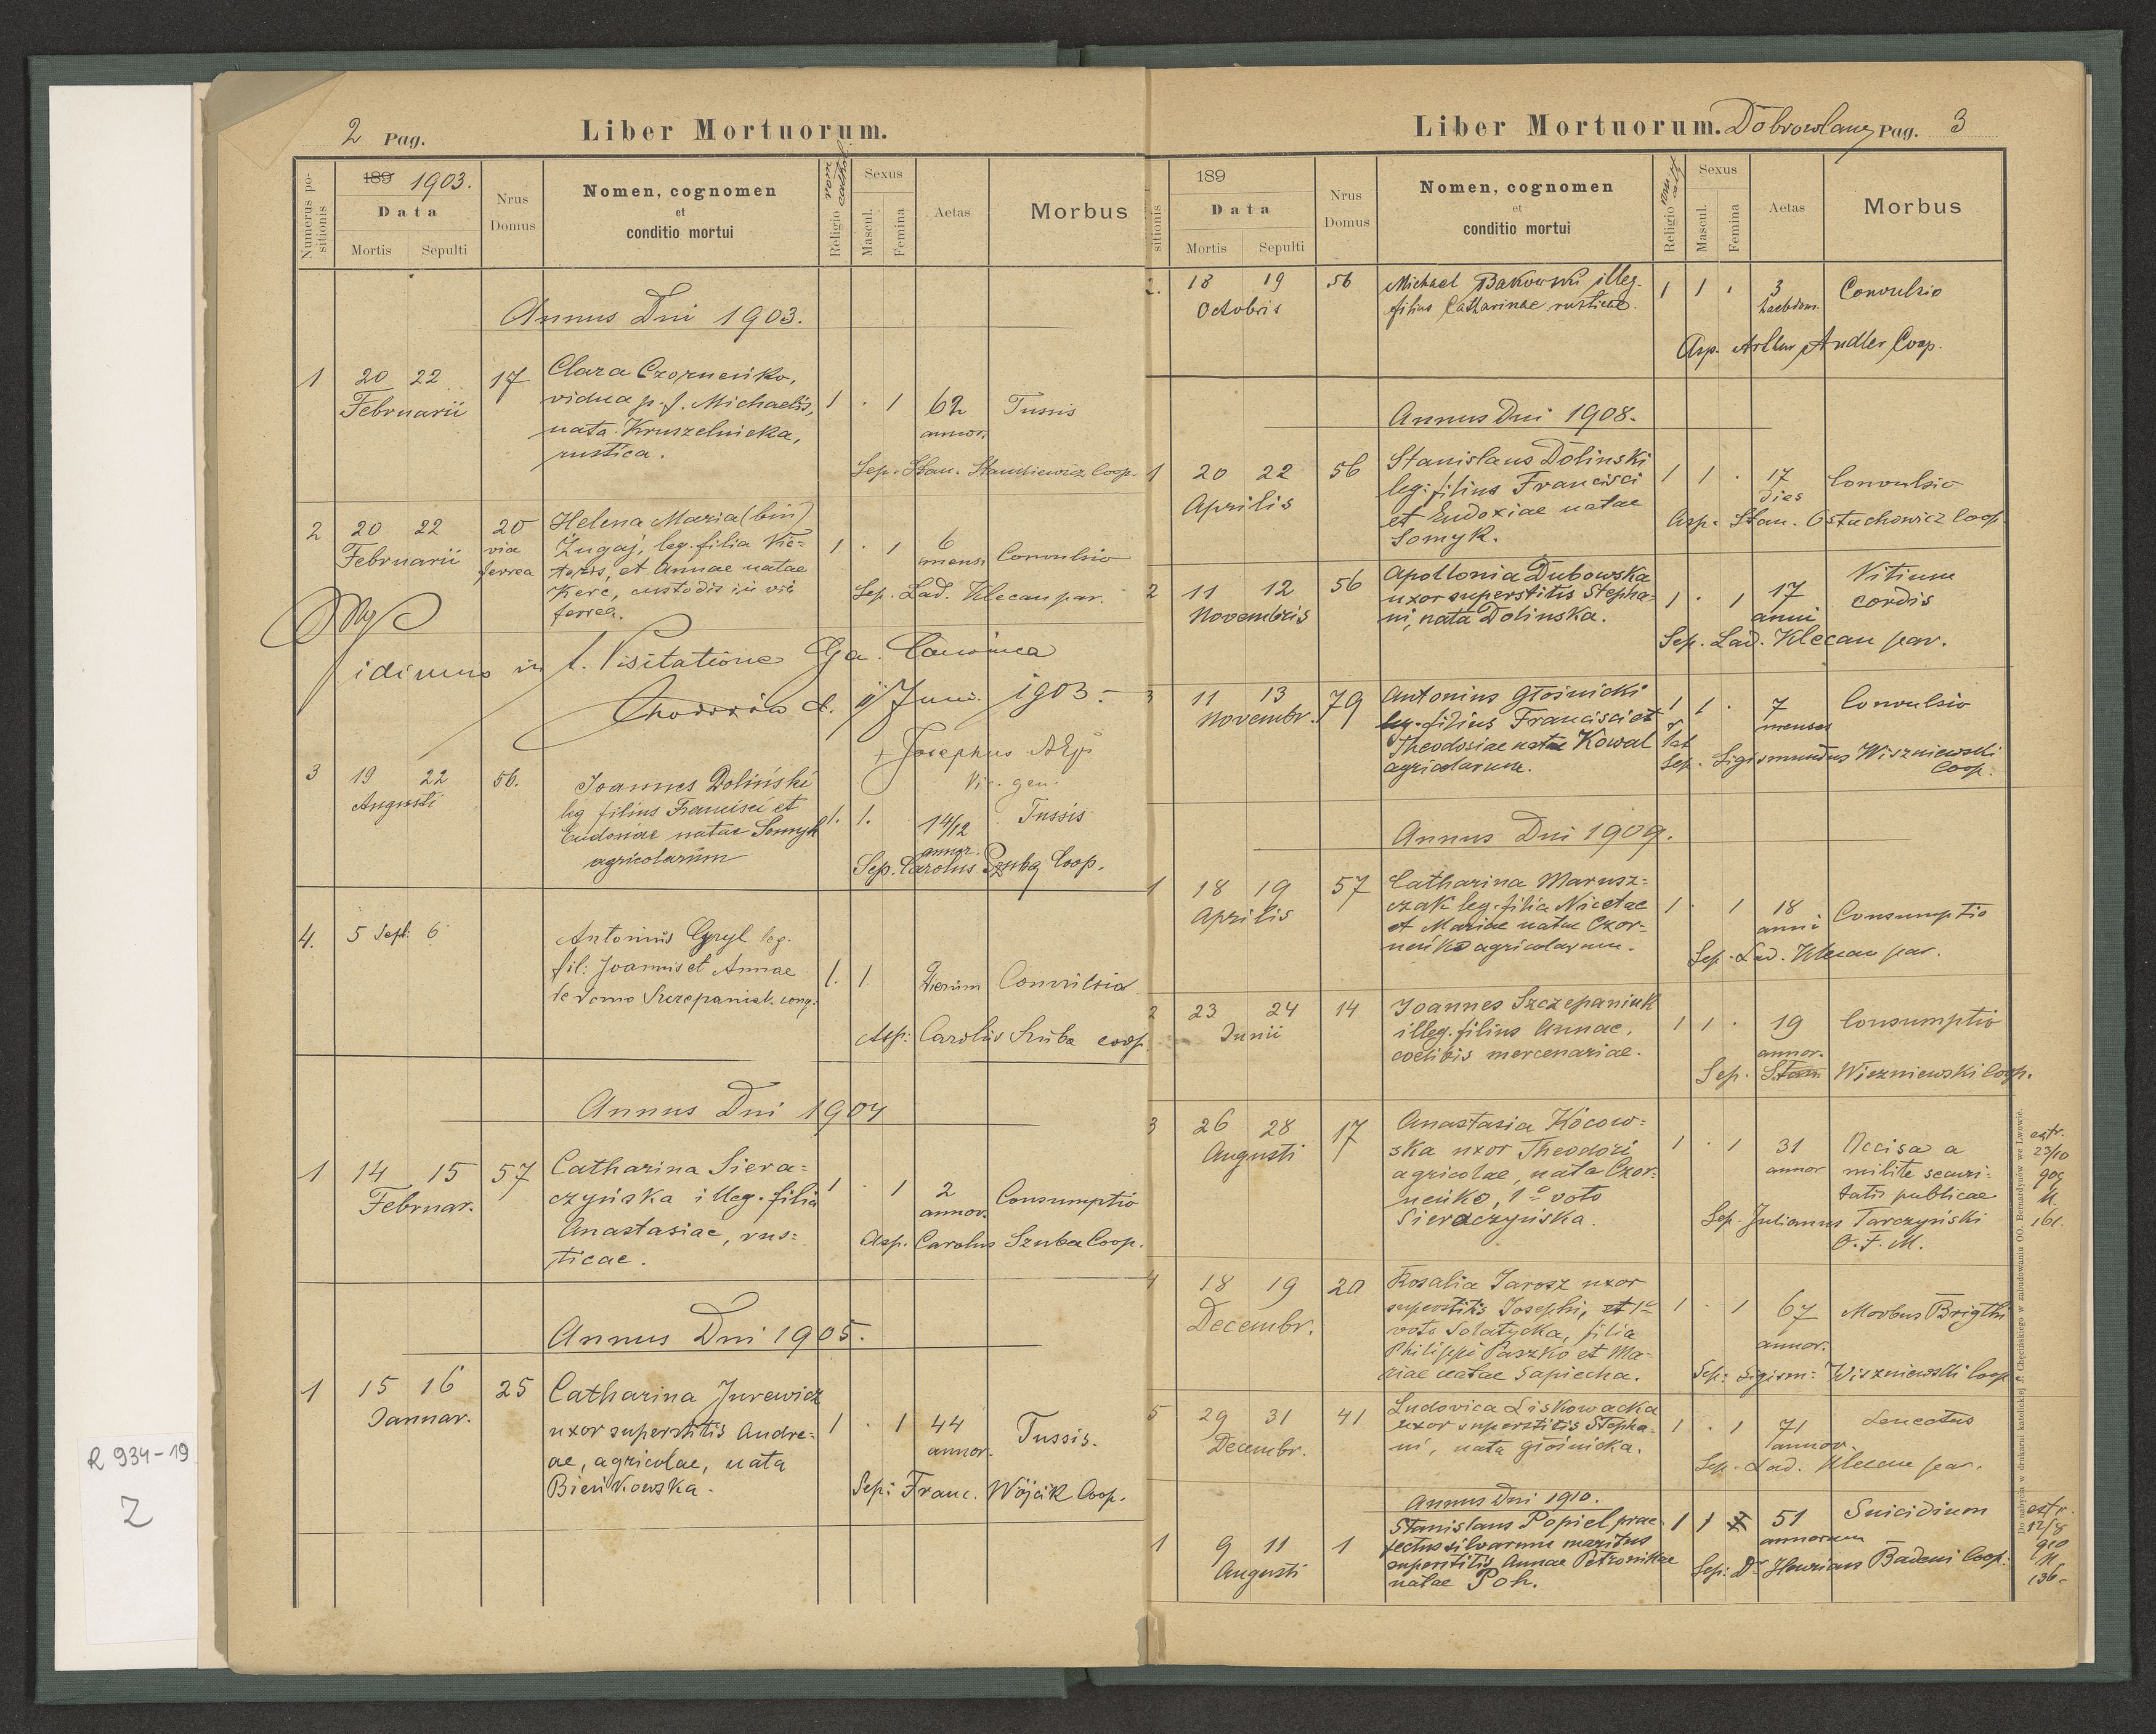 2 Pag.
Liber Mortuorum.
Numerus positionis
189 1903.
Data
Mortis Sepulti
Nrus Domus
Nomen, cognomen
et
conditio mortui
Religio
Sexus
Mascul.
Femina
Aetas
Morbus
Annus Dni 1903.
1 20 22 17 Clara Czorneńko,
Februarii vidua p. f. Michaelis, 1 . 1 62 Tussis
nata Kruszelnicka, annor.
rustica.
Sep. Stan. Stankiewicz Coop.
2 20 22 20 Helena Maria (bin)
Februarii via ferrea Żugaj, leg. filia Vic= 1 . 1 6 mensi Convulsio
toris, et Annae natae
Kerc, custodis in via Sep. Lad. Klecan par.
ferrea.
Vidimus in s. Visitatione Ga. Canonica
d. Junii 1903 -
+ Josephus
Vic. gen.
3 19 22 56. Joannes Doliński
Augusti leg filius Francisci et 1. 1. 14/12 Tussis
Eudoxiae natae Somyk annor.
agricolarum Sep. Carolus Szuba Coop.
4. 5 Sept. 6 Antonius Gryl leg.
fil: Joannis et Annae 1. 1. 9 dierum Convulsia
de domo Szczepaniak. conj.
Asp: Carolus Szuba coop.
Annus Dni 1904
1 14 15 57 Catharina Siera=
Februar. czyńska illeg. filia 1 . 1 2 annor. Consumptio
Anastasiae, rus=
ticae. Asp. Carolus Szuba Coop.
Annus Dni 1905.
1 15 16 25 Catharina Jurewicz
Januar. uxor superstitis Andre= 1 . 1 44 annor. Tussis.
ae, agricolae, nata
Bieńkowska. Sep: Franc. Wójcik Coop.
R 934-19
2
Liber Mortuorum. Dobrowlany Pag. 3
sitionis
189
Data
Mortis Sepulti
Nrus Domus
Nomen, cognomen
et
conditio mortui
Religio
Sexus
Mascul.
Femina
Aetas
Morbus
2. 18 19 56 Michael Bakowski illeg. 1 1 . 3 Convulsio
Octobris filius Catharinae rusticae. haebdom.
Asp. Arthur Andler Coop.
Annus Dni 1908.
1 20 22 56 Stanislaus Dolinski
Aprilis leg. filius Francisci 1 1 . 17 dies Convulsio
et Eudoxiae natae Asp. Stan. Ostachowicz Coop.
Somyk.
2 11 12 56 Apollonia Dubowska Vitium
Novembris uxor superstitis Stepha= 1 . 1 17 anni cordis
ni, nata Dolinska.
Sep. Lad. Klecan par.
3 11 13 79 Antonius Głośnicki 1 1 . 7 Convulsio
Novembr. leg. filius Francisci et menses
Theodosiae natae Kowal
agricolarum. Sep. Sigismundus Wiszniewski
Coop.
Annus Dni 1909.
1 18 19 57 Catharina Marusz=
Aprilis czak leg. filia Nicetae 1 . 1 18 Consumptio
et Mariae natae Czor= anni
neńko agricolarum. Sep. Lad. Klecan par.
2 23 24 14 Joannes Szczepaniuk
Junii illeg. filius Annae, 1 1 . 19 Consumptio
coelibis mercenariae. annor.
Sep. Stan. Wiszniewski Coop.
3 26 28 17 Anastasia Kocow=
Augusti ska uxor Theodori 1 . 1 31 Occisa a
agricolae, nata Czor= annor milite securi=
neńko, 1o voto tatis publicae
Sieraczyńska. Sep. Julianus Tarczyński
O. F. M.
extr.
23/10
909
N
161.
4 18 19 20 Rosalia Jarosz uxor
Decembr. superstitis Josephi, et 1o 1 . 1 67 Morbus Brigthi
voto Sałatycka, filia annor.
Philippi Paszko et Ma=
riae natae Sapiecha. Sep: Sigism: Wiszniewski Coop
5 29 31 41 Ludovica Liskowacka
Decembr. uxor superstitis Stepha= 1 . 1 71 Senectus
ni, nata Głośnicka. annor.
Sep. Lad. Klecan par.
Annus Dni 1910.
1 9 11 1 Stanislaus Popiel prae= 1 1 51 Suicidium
Augusti fectus silvarum maritus annorum
superstitis Annae Petronillae Sep: Dr Henricus Badeni Coop.
natae Poh.
extr.
12/8
910
N.
136.
Do nabycia w drukarni katolickiej J. Chęcińskiego w zabudowaniu OO. Bernardynów we Lwowie.